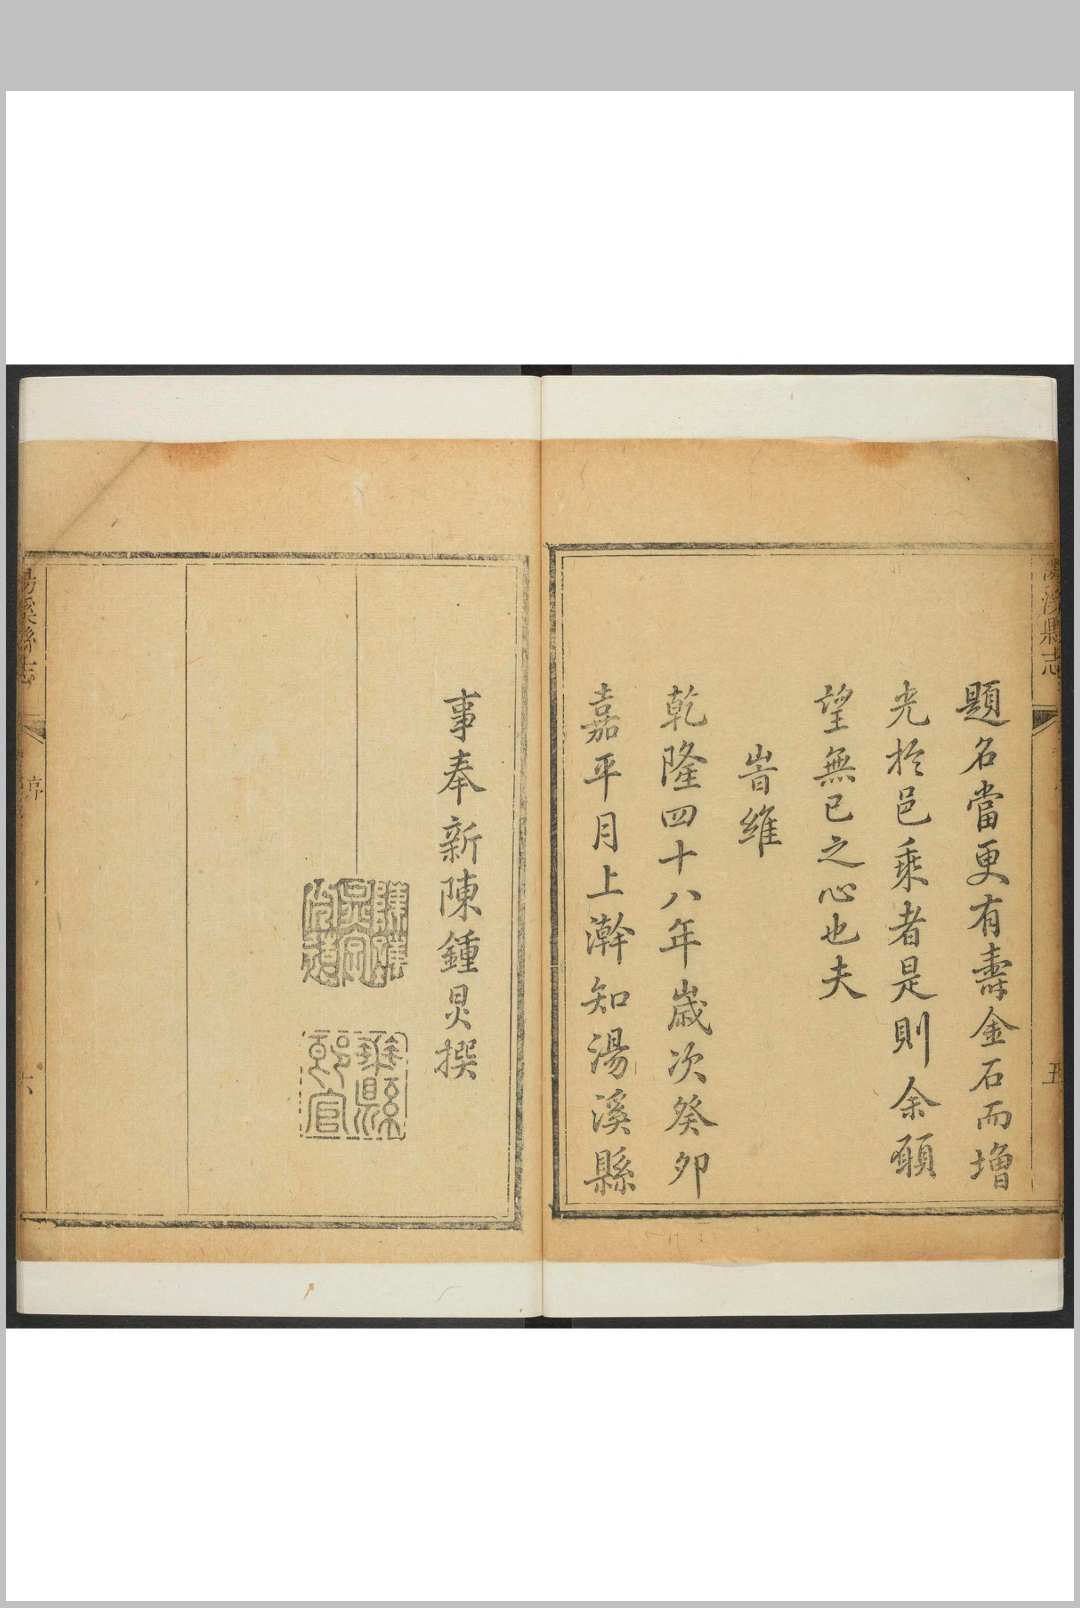 湯溪縣志
五
題名當更有壽金石而增
光於邑乘者是則余願
望無已之心也夫
旹維
乾隆四十八年歲次癸卯
嘉平月上澣知湯溪縣
事奉新陳鍾炅撰
湯溪縣志
序
六